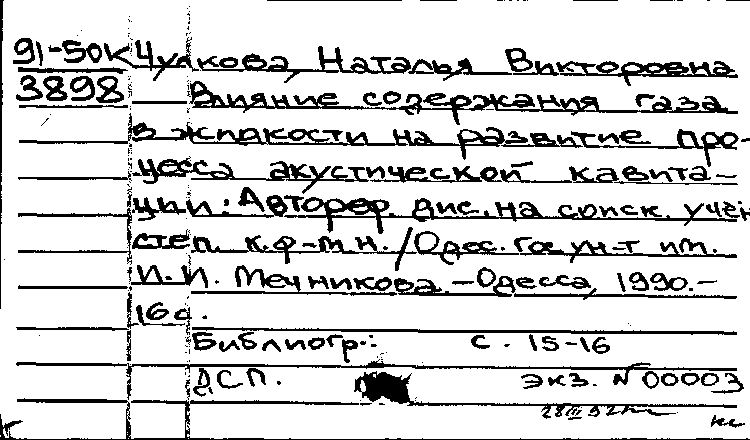 91-50К Чулкова, Наталья Викторовна
3898 Влияние содержания газа
в жидкости на развитие про-
цесса акустической кавита-
ции: Автореф. дис. на соиск. учен
степ. к.ф-м.н. / Одес. гос. ун-т им.
И.И. Мечникова. - Одесса, 1990. -
16 с.
Библиогр.: с. 15-16
ДСП. экз. № 00003